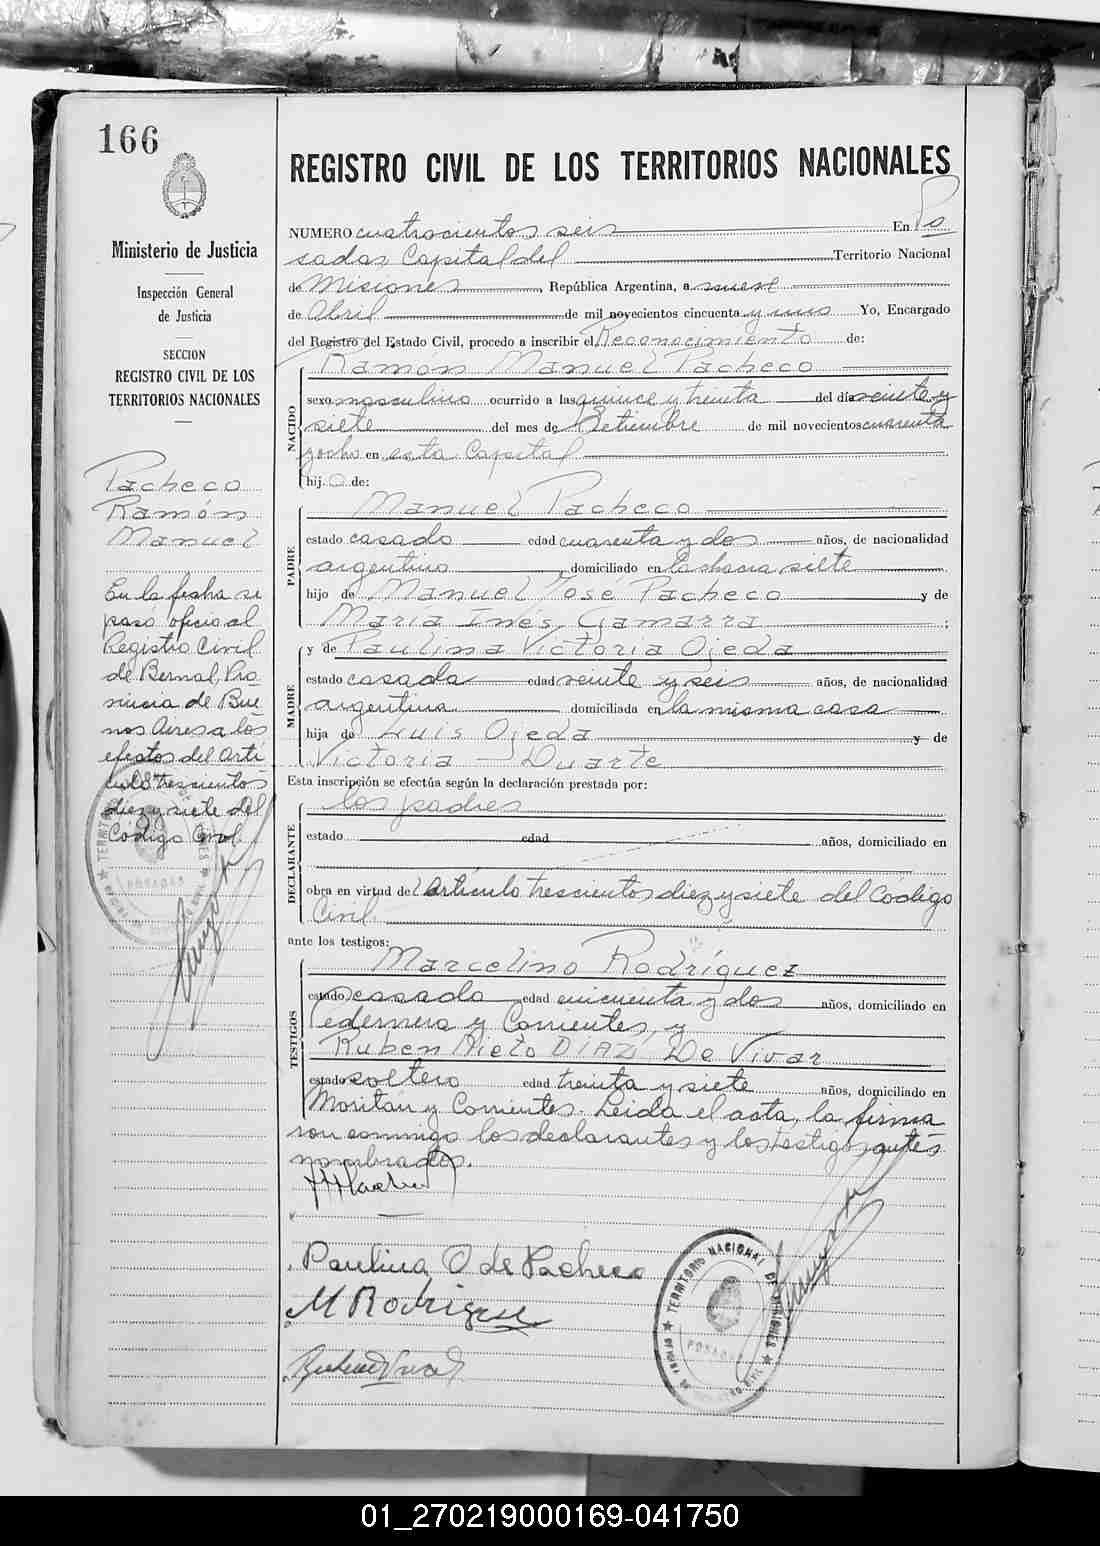 166
Ministerio de Justicia
Inspección General
de Justicia
SECCION
REGISTRO CIVIL DE LOS
TERRITORIOS NACIONALES
Pacheco
Ramón
Manuel
En la fecha se
pasó oficio al
Registro Civil
de Bernal, Pro
vincia de Bue
nos Aires a los
efectos del Artí
culo trescientos
diez y siete del
Código Civil.
REGISTRO CIVIL DE LOS TERRITORIOS NACIONALES
NUMERO cuatrocientos seis En Po
sadas Capital del Territorio Nacional
de Misiones, República Argentina, a nueve
de Abril de mil novecientos cincuenta y uno Yo, Encargado
del Registro del Estado Civil, procedo a inscribir el Reconocimiento de:
NACIDO
Ramón Manuel Pacheco
sexo masculino ocurrido a las quince y treinta del día veinte y
siete del mes de Setiembre de mil novecientos cuarenta
y ocho en esta Capital
hij o de:
PADRE
Manuel Pacheco
estado casado edad cuarenta y dos años, de nacionalidad
argentino, domiciliado en la chacra siete
hijo de Manuel José Pacheco y de
María Inés Gamarra ;
MADRE
y de Paulina Victoria Ojeda
estado casada edad veinte y seis años, de nacionalidad
argentina domiciliada en la misma casa
hija de Luis Ojeda y de
Victoria Duarte
Esta inscripción se efectúa según la declaración prestada por:
DECLARANTE
los padres
estado edad años, domiciliado en
obra en virtud del Artículo trescientos diez y siete del Código
Civil
ante los testigos:
TESTIGOS
Marcelino Rodríguez
estado casado edad cincuenta y dos años, domiciliado en
Pedernera y Corrientes, y
Ruben Nieto DIAZ De Vivar
estado soltero edad treinta y siete años, domiciliado en
Moritán y Corrientes. Leida el acta, la firma
ron conmigo los declarantes y los testigos antes
nombrados.
Paulina O de Pacheco
M Rodriguez
TERRITORIO NACIONAL DE MISIONES
POSADAS
01_270219000169-041750